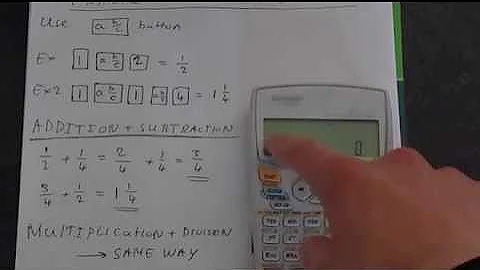 Use [a b/c] button
Ex [1] [a b/c] [2] = 1/2
Ex2 [1] [a b/c] [1] [a b/c] [4] = 1 1/4
ADDITION + SUBTRACTION
1/2 + 1/4 = 2/4 + 1/4 = 3/4
3/4 + 1/2 = 1 1/4
MULTIPLICATION + DIVISION
→ SAME WAY
0.